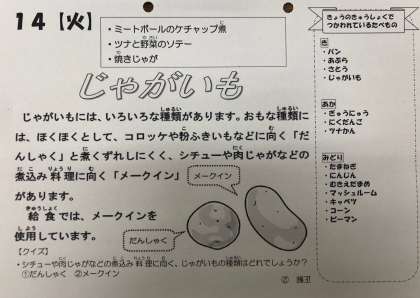 14【火】
・ミートボールのケチャップ煮
・ツナと野菜のソテー
・焼きじゃが
じゃがいも
じゃがいもには、いろいろな種類があります。おもな種類に
は、ほくほくとして、コロッケや粉ふきいもなどに向く「だ
んしゃく」と煮くずれしにくく、シチューや肉じゃがなどの
煮込み料理に向く「メークイン」
があります。
給食では、メークインを
使用しています。
メークイン
だんしゃく
【クイズ】
・シチューや肉じゃがなどの煮込み料理に向く、じゃがいもの種類はどれでしょうか？
①だんしゃく ②メークイン
きょうのきゅうしょくで
つかわれているたべもの
き
・パン
・あぶら
・さとう
・じゃがいも
あか
・ぎゅうにゅう
・にくだんご
・ツナかん
みどり
・たまねぎ
・にんじん
・むきえだまめ
・マッシュルーム
・キャベツ
・コーン
・ピーマン